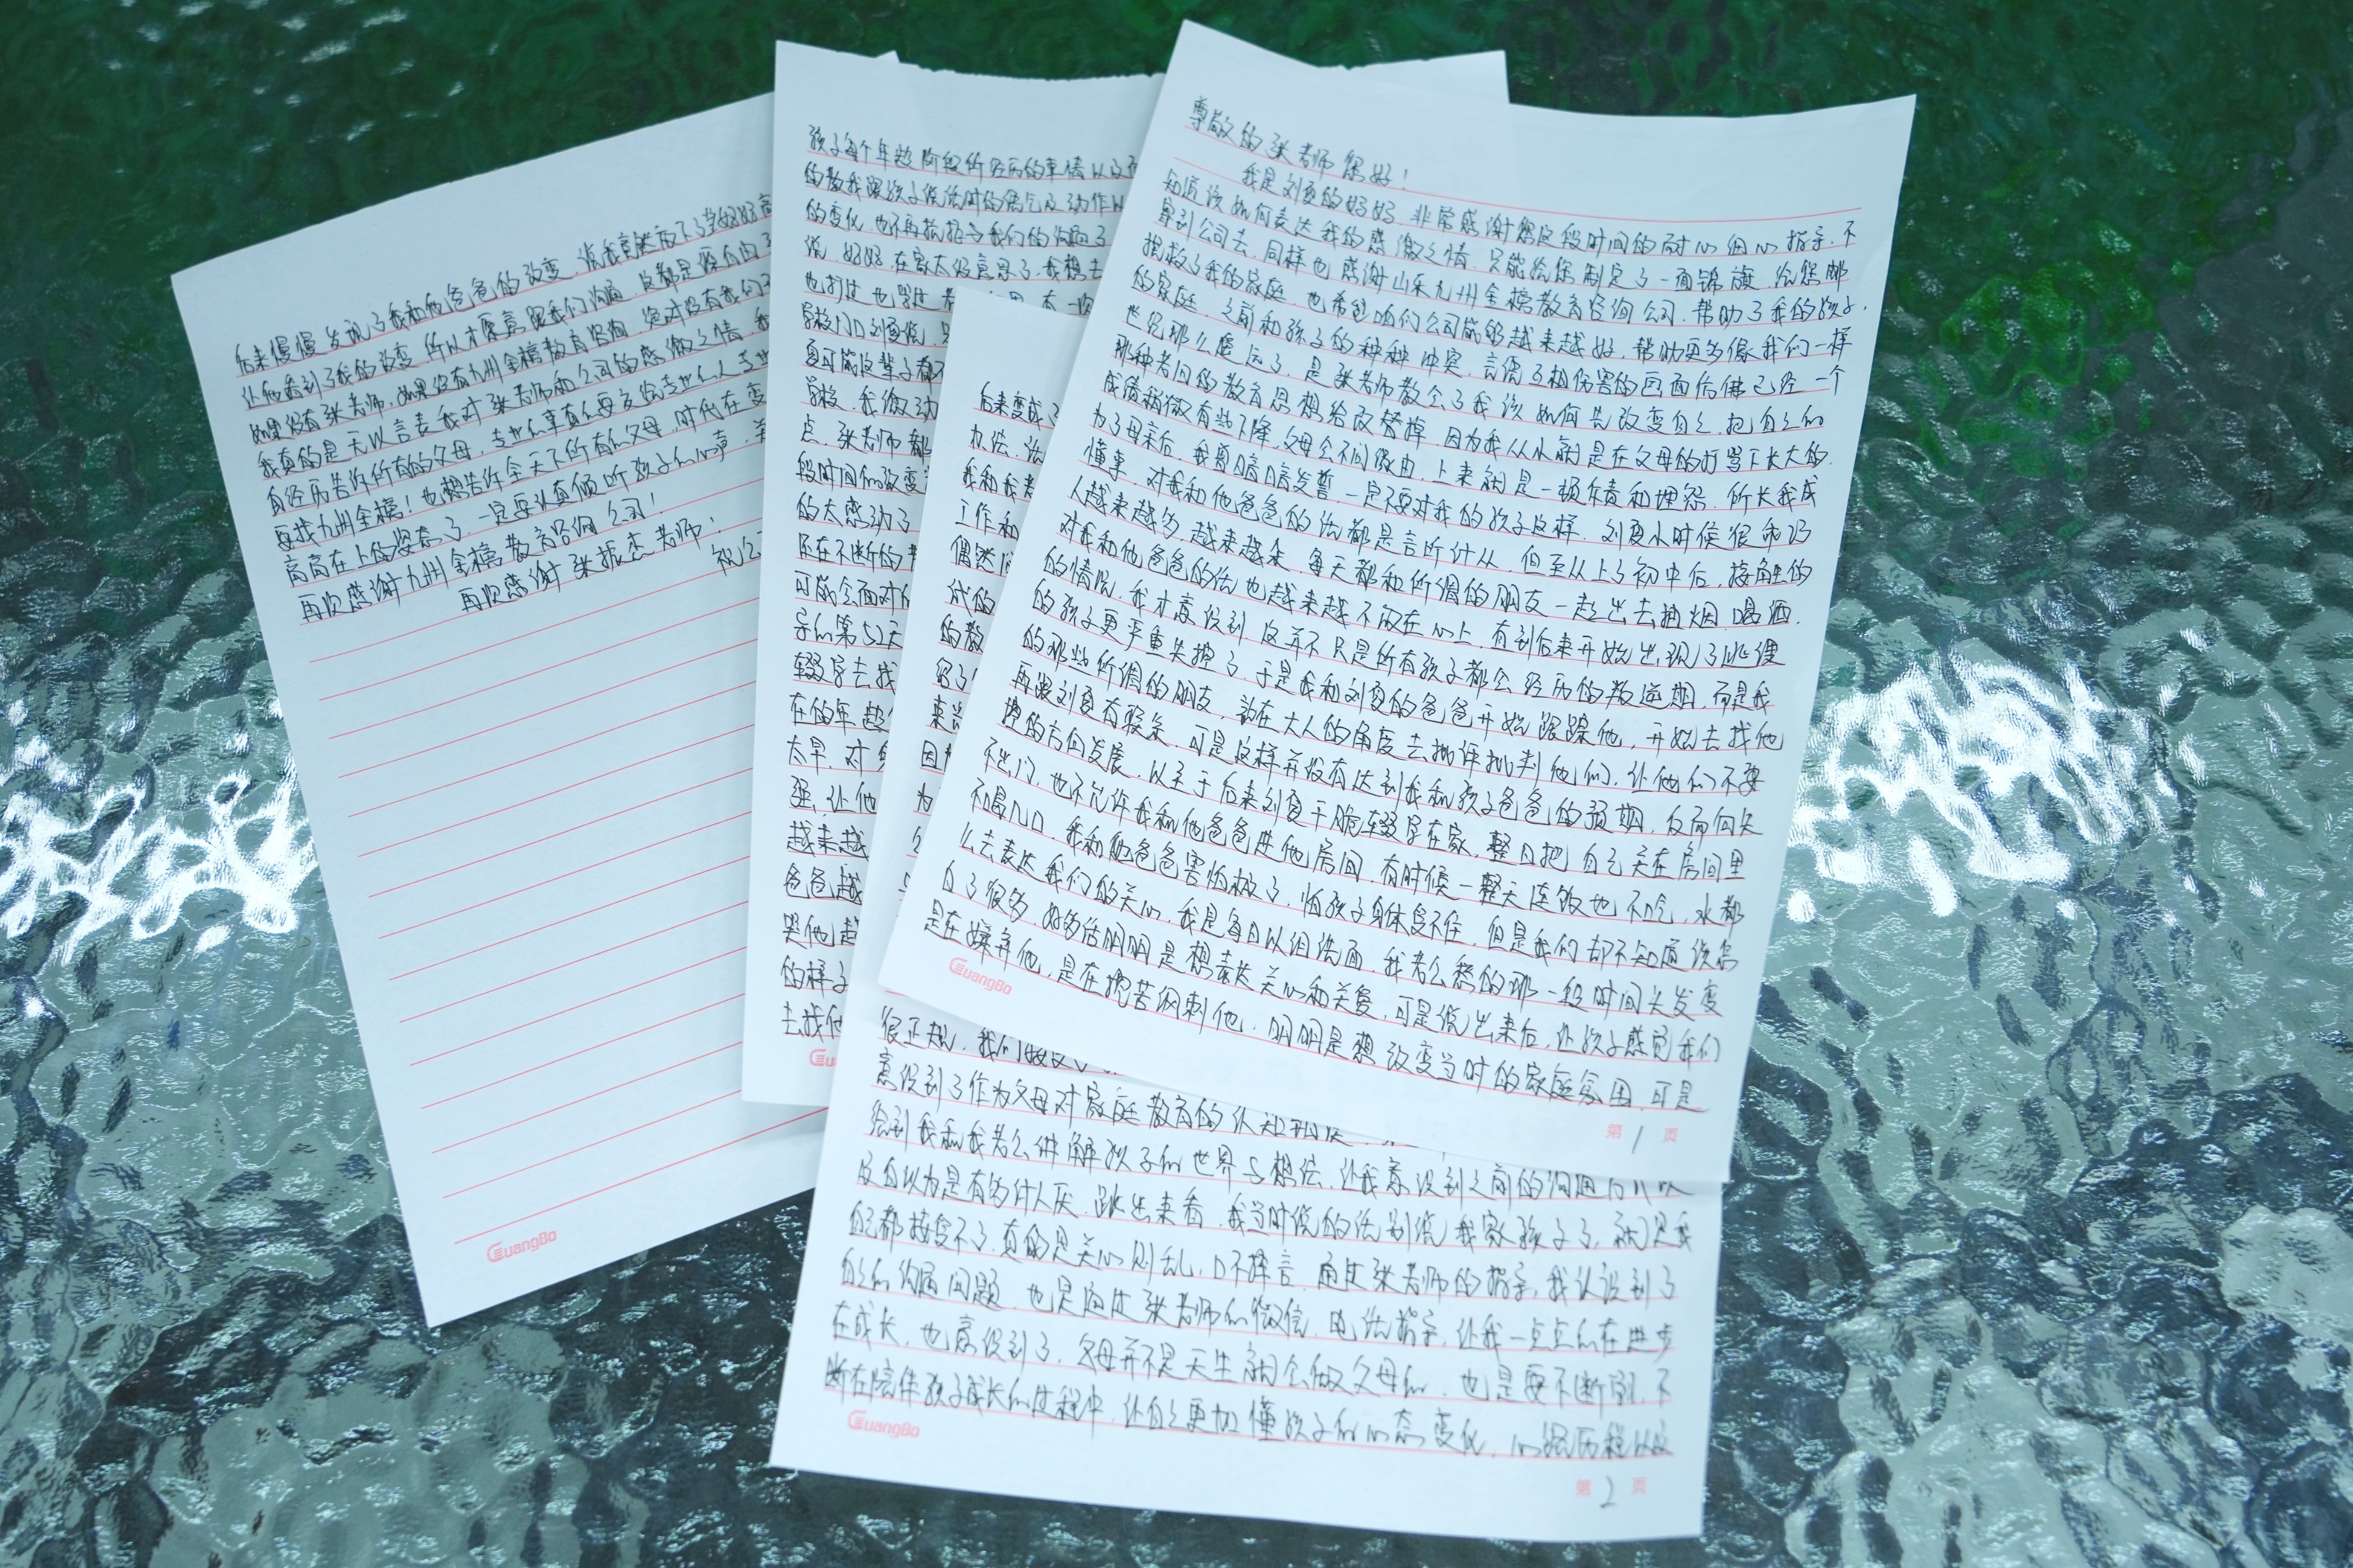 尊敬的张老师您好！
我是刘夏的妈妈，非常感谢您这段时间的耐心细心指导，不
知道该如何表达我的感激之情，只能给您制定了一面锦旗，给您邮
寄到公司去，同样也感谢山东九州金榜教育咨询公司，帮助了我的孩子，
拯救了我的家庭，也希望咱们公司能够越来越好，帮助更多像我们一样
的家庭，之前和孩子的种种冲突，言语互相伤害的画面仿佛已经一个
世纪那么遥远了，是张老师教会了我该如何去改变自己，把自己的
那种老旧的教育思想给改替掉，因为我从小就是在父母的打骂下长大的，
成绩稍微有些下降，父母会不问缘由，上来就是一顿斥责和埋怨，所长我成
为了母亲后，我暗暗发誓，一定不要对我的孩子这样，刘夏小时候很乖巧
懂事，对我和他爸爸的话都是言听计从，但至从上了初中后，接触的
人越来越多，越来越杂，每天都和所谓的朋友一起出去抽烟、喝酒，
对我和他爸爸的话也越来越不放在心上，直到后来开始出现了逃课
的情况，我才意识到，这并不只是所有孩子都会经历的叛逆期，而是我
的孩子更严重失控了，于是我和刘夏的爸爸开始跟踪他，开始去找他
的那些所谓的朋友，站在大人的角度去批评批判他们，让他们不要
再跟刘夏有联系，可是这样并没有达到我和孩子爸爸的预期，反而向失
控的方向发展，以至于后来刘夏干脆辍学在家，整日把自己关在房间里
不出门，也不允许我和他爸爸进他房间，有时候一整天连饭也不吃，水都
不喝几口，我和他爸爸害怕极了，怕孩子身体受不住，但是我们却不知道该怎
么去表达我们的关心，我是每日以泪洗面，我老公愁的那一段时间头发变
白了很多，好多话明明是想表达关心和关爱，可是说出来后，让孩子感觉我们
是在嫌弃他，是在挖苦讽刺他，明明是想改变当时的家庭氛围，可是
GuangBo
第 1 页
很正规，我们
意识到了作为父母对家庭教育的认知
给到我和我老公讲解孩子的世界与想法，让我意识到之前的沟通
反自以为是有多讨人厌，跳出来看，我当时说的话别说我家孩子了，就是我
自己都接受不了，真的是关心则乱，口不择言，通过张老师的指导，我认识到了
自己的沟通问题，也是通过张老师的微信、电话指导，让我一点点的在进步
在成长，也意识到了，父母并不是天生就会做父母的，也是要不断学习，不
断在陪伴孩子成长的过程中，让自己更加懂孩子的心态变化，心路历程以及
GuangBo
第 2 页
后来变成
办法，
我和我老
工作和
偶然
试的
的教
因
为
孩子每个年龄阶段所经历的事情以及
的教我跟孩子说话时的语气及动作
的变化，也不再抗拒与我们的沟通了
说，妈妈，在家太没意思了，我想去
学校门口刘夏说，
夏可能这辈子都
学校，我激动
点，张老师都
段时间的改变
的太感动了
还在不断的
可能会面对
导的第52天
辍学去找
在的年龄
太早，对
强，让他
越来越
爸爸越
哭他
的样子
去找他
后来慢慢发现了我和他爸爸的改变，说我竟然放下了
让他看到了我的改变，所以才愿意跟我们沟通，这都是
如果没有张老师，如果没有九州金榜教育咨询，绝对没有我们
我真的是无以言表我对张老师和公司的感激之情，
自经历告诉所有的父母，专业的事真的要交给专业的人
要找九州金榜！也想告诉全天下所有的父母，时代在变
高高在上的姿态了，一定要认真倾听孩子的心声，
再次感谢九州金榜教育咨询公司！
再次感谢张振杰老师！
祝公
GuangBo